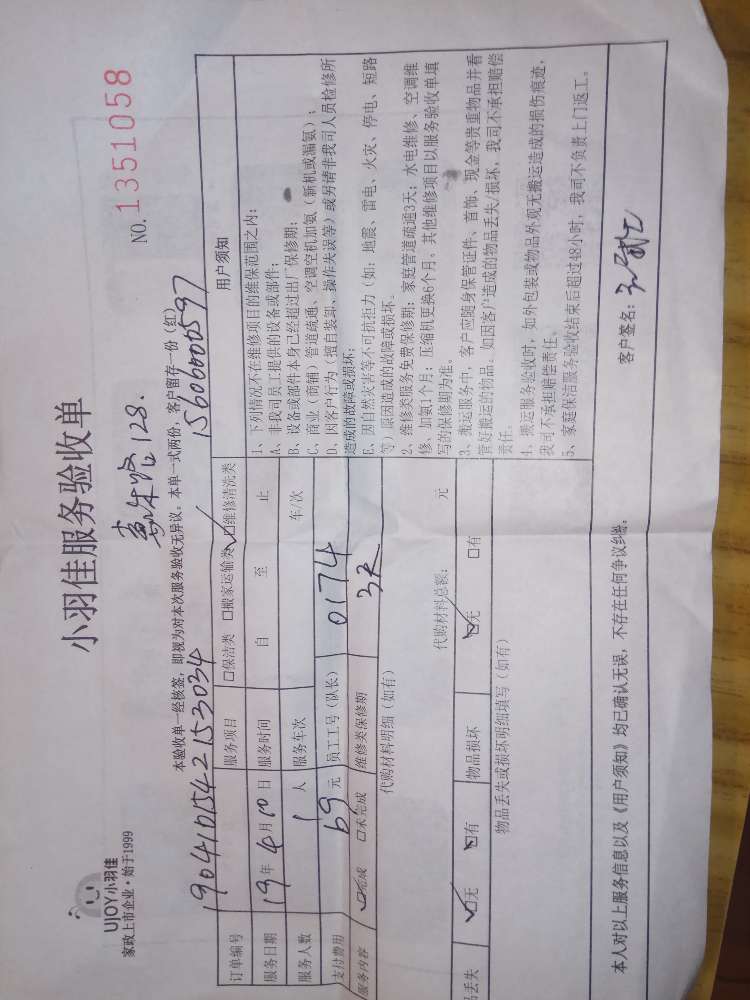 UJOY小羽佳
家政上市企业·始于1999
小羽佳服务验收单
NO. 1351058
128.
本验收单一经核签，即视为对本次服务验收无异议。本单一式两份，客户留存一份（红）
15606000597
订单编号 1904101542153034
服务项目 □保洁类 □搬家运输类 ☑维修清洗类
服务日期 19年4月10日 服务时间 自 至 止
服务人数 1人 服务车次 车/次
支付费用 69元 员工工号（队长） 0174
服务内容 ☑完成 □未完成 维修类保修期 3天
代购材料明细（如有）
代购材料总额： 元
品丢失 ☑无 □有 物品损坏 ☑无 □有
物品丢失或损坏明细填写（如有）
用户须知
1、下列情况不在维修项目的维保范围之内：
A、非我司员工提供的设备或部件；
B、设备或部件本身已经超过出厂保修期；
C、商业（商铺）管道疏通、空调空机加氨（新机或漏氨）；
D、因客户行为（擅自装卸、操作失误等）或另请非我司人员检修所
造成的故障或损坏；
E、因自然灾害等不可抗拒力（如：地震、雷电、火灾、停电、短路
等）原因造成的故障或损坏。
2、维修类服务免费保修期：家庭管道疏通3天；水电维修、空调维
修、加氨1个月；压缩机更换6个月。其他维修项目以服务验收单填
写的保修期为准。
3、搬运服务中，客户应随身保管证件、首饰、现金等贵重物品并看
管好搬运的物品。如因客户造成的物品丢失/损坏，我司不承担赔偿
责任。
4、搬运服务验收时，如外包装或物品外观无搬运造成的损伤痕迹，
我司不承担赔偿责任。
5、家庭保洁服务验收结束后超过48小时，我司不负责上门返工。
本人对以上服务信息以及《用户须知》均已确认无误，不存在任何争议纠纷。
客户签名：